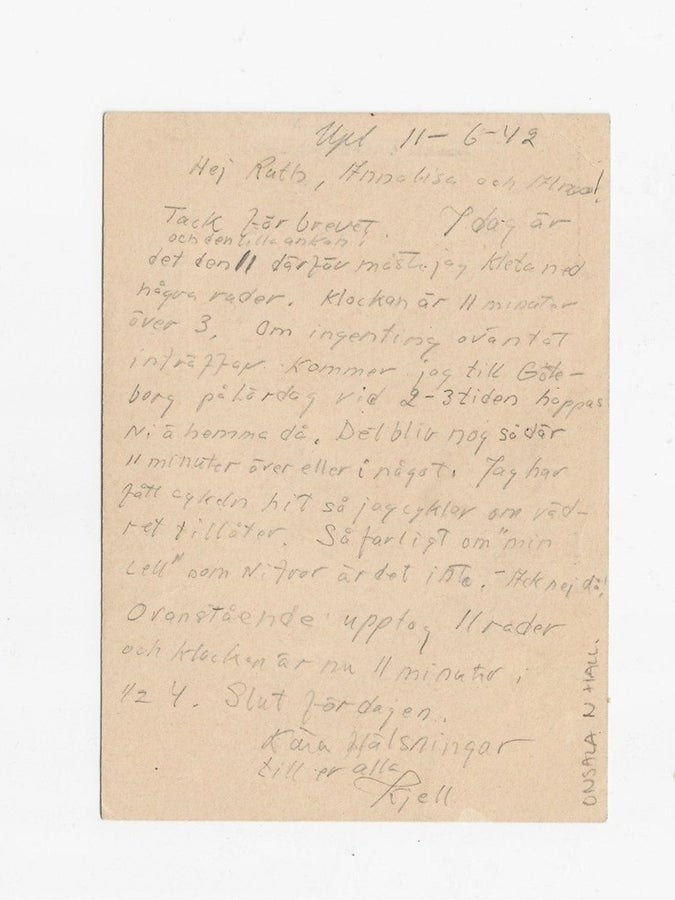 Upl 11-6-42
Hej Ruth, Annalisa och
Tack för brevet. I dag är
och den lilla ankan!
det den 11 därför måste jag kleta ned
några rader. Klockan är 11 minuter
över 3. Om ingenting oväntat
inträffar kommer jag till Göte-
borg på lördag vid 2-3 tiden hoppas
Ni ä hemma då. Det blir nog sådär
11 minuter över eller i något. Jag har
fått cykeln hit så jag cyklar om väd-
ret tillåter. Så farligt om "min
Lell" som Ni tror är det inte. - Ack nej då!
Ovanstående upptog 11 rader
och klockan är nu 11 minuter i
1/2 4. Slut för dagen.
Kära Hälsningar
till er alla
Kjell
ONSALA N HALL.